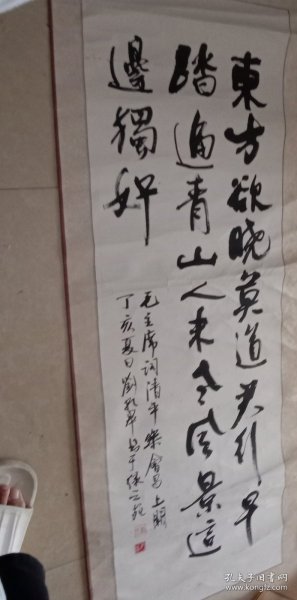 東方欲晓莫道君行早
踏遍青山人未老風景這
邊獨好
毛主席词清平樂會昌上闋
丁亥夏日劉
孔夫子旧书网
kongfz.com